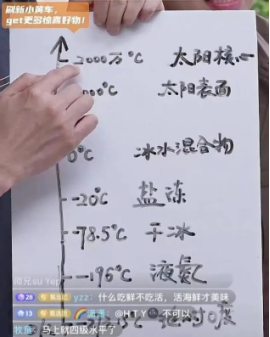 刷新小黄车，
get更多惊喜好物！
2000万°C 太阳核心
000°C 太阳表面
0°C 冰水混合物
-20°C 盐冻
-78.5°C 干冰
-196°C 液氮
帅元su Yep
26 yzz：什么吃鲜不吃活，活海鲜才美味
13 @H T Y 不可以
对0度
牧鱼：马上就四级水平了